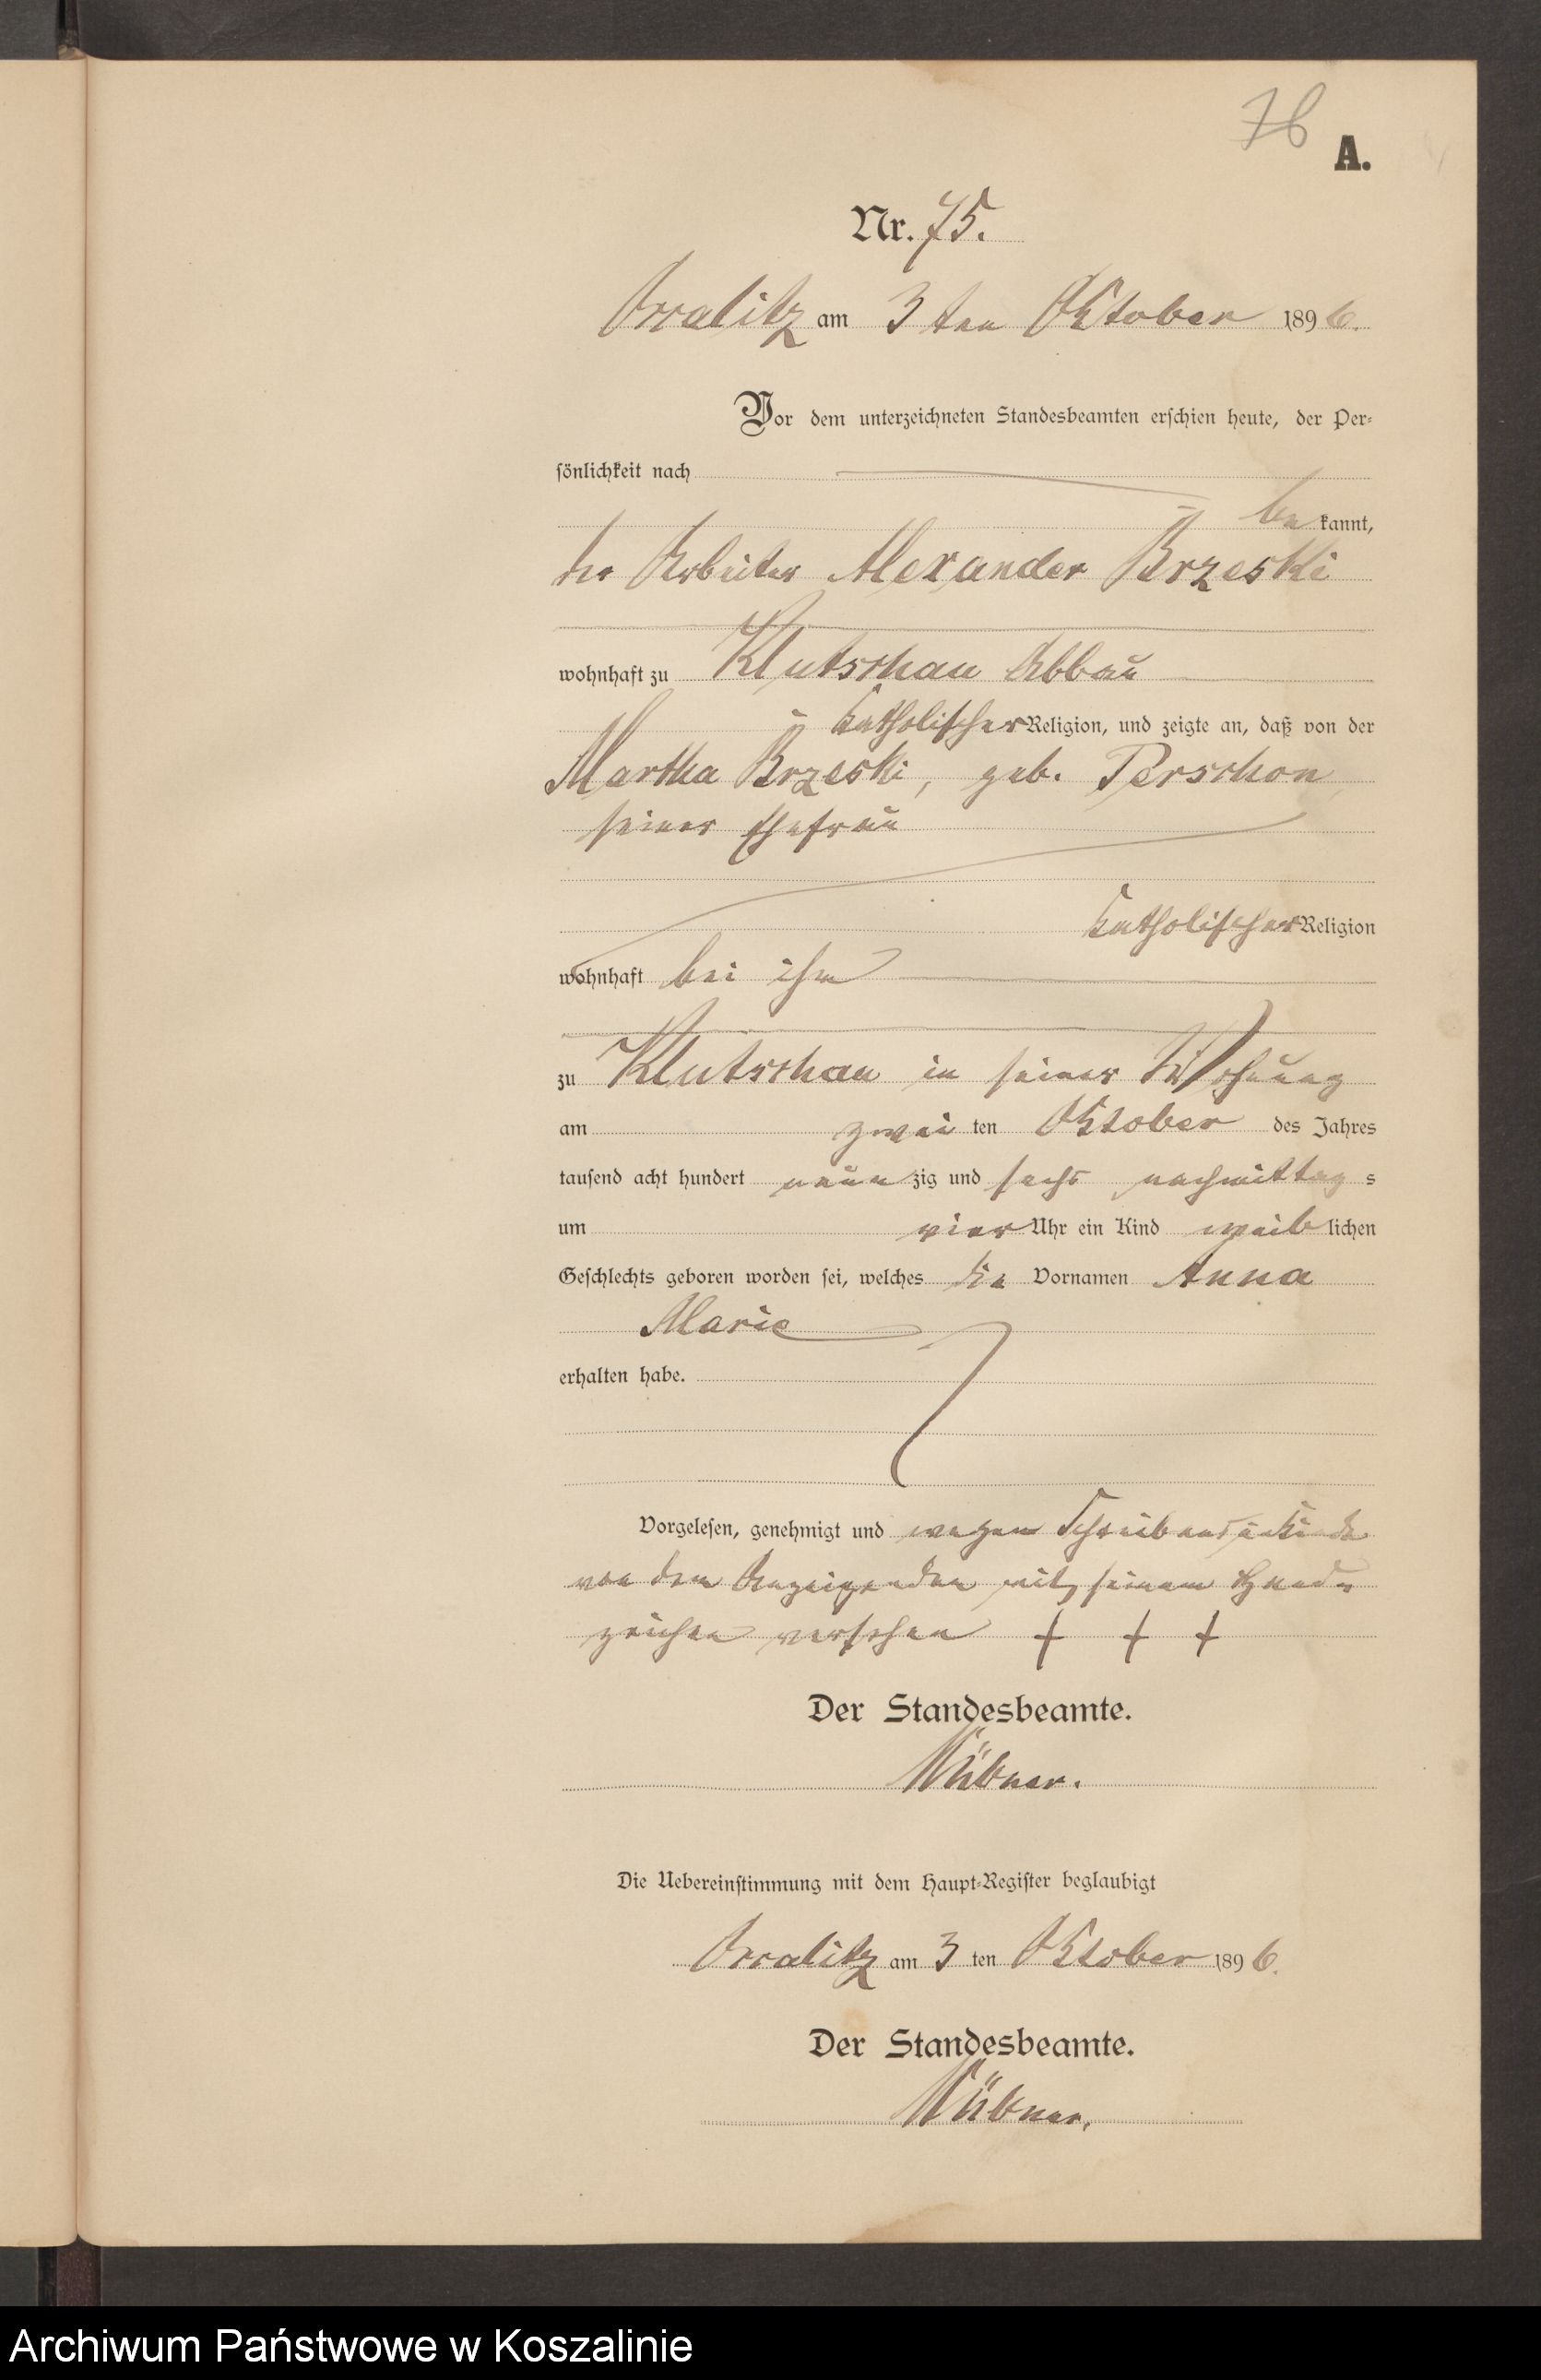 76
A.
Nr. 75.
Occalitz am 3 ten Oktober 1896.
Vor dem unterzeichneten Standesbeamten erschien heute, der Per-
sönlichkeit nach
be kannt,
der Arbeiter Alexander Brzeski
wohnhaft zu Klutschau Abbau
katholischer Religion, und zeigte an, daß von der
Martha Brzeski, geb. Perschon,
seiner Ehefrau
katholischer Religion
wohnhaft bei ihm
zu Klutschau in seiner Wohnung
am zwei ten Oktober des Jahres
tausend acht hundert neun zig und sechs nachmittag s
um vier Uhr ein Kind weib lichen
Geschlechts geboren worden sei, welches die Vornamen Anna
Marie
erhalten habe.
Vorgelesen, genehmigt und wegen Schreibensunkunde
von dem Anzeigenden mit seinem Hand-
zeichen versehen + + +
Der Standesbeamte.
Die Uebereinstimmung mit dem Haupt-Register beglaubigt
Occalitz am 3 ten Oktober 1896.
Der Standesbeamte.
Archiwum Państwowe w Koszalinie